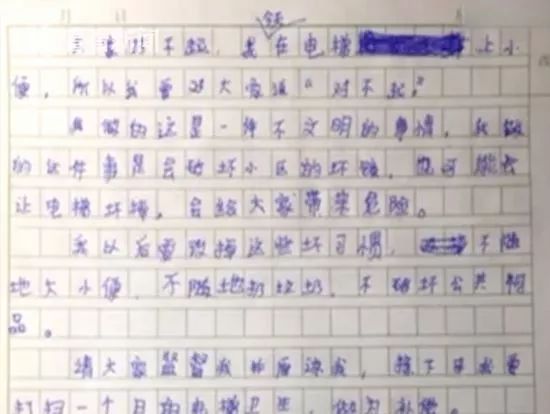 对不起，我在电梯上小
便，所以我要对大家说“对不起”
我做的这是一件不文明的事情，我做
的这件事是会破坏小区的环境，也可能会
让电梯坏掉，会给大家带来危险。
我以后要改掉这些坏习惯，不随
地大小便，不随地扔垃圾，不破坏公共物
品。
请大家监督我和原谅我，接下来我要
打扫一个月的电梯卫生，做为补偿。